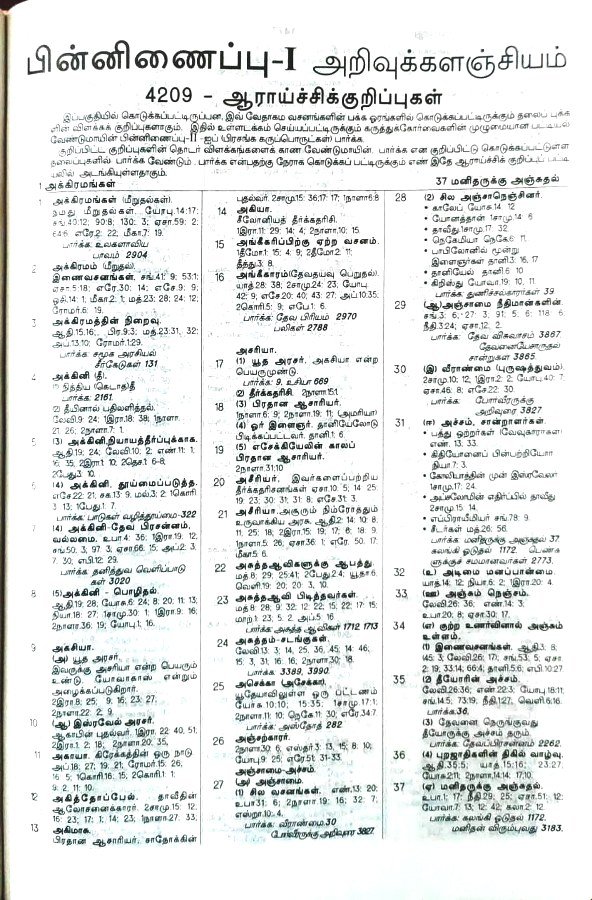 பின்னிணைப்பு-I அறிவுக்களஞ்சியம்
4209 - ஆராய்ச்சிக்குறிப்புகள்
இப்பகுதியில் கொடுக்கப்பட்டிருப்பன, இவ் வேதாகம வசனங்களின் பக்க ஓரங்களில் கொடுக்கப்பட்டிருக்கும் தலைப்பு பக்க
ளின் விளக்கக் குறிப்புகளாகும். இதில் உள்ளடக்கம் செய்யப்பட்டிருக்கும் கருத்துக்கோர்வைகளின் முழுமையான பட்டியல
வேண்டுமாயின் பின்னிணைப்பு-II -ஐப் (பிரசங்க கருப்பொருட்கள்) பார்க்க.
குறிப்பிட்ட குறிப்புகளின் தொடர் விளக்கங்களைக் காண வேண்டுமாயின், பார்க்க என குறிப்பிட்டு கொடுக்கப்பட்டுள்ள
தலைப்புகளில் பார்க்க வேண்டும். பார்க்க என்பதற்கு நேராகக் கொடுக்கப் பட்டிருக்கும் எண் இதே ஆராய்ச்சிக் குறிப்புப் பட்டி
யலில் அடங்கியுள்ளதாகும்.
1 அக்கிரமங்கள்
37 மனிதருக்கு அஞ்சுதல்
1 அக்கிரமங்கள் (மீறுதல்கள்).
நமது மீறுதல்கள், யோபு.14:17;
சங்.40:12; 90:8; 130: 3; ஏசா.59: 2;
64:6 எரே.2: 22; மீகா.7: 19.
பார்க்க: உலகளாவிய
பாவம் 2904
2 அக்கிரமம் (மீறுதல்)
இணைவசனங்கள், சங்.41: 9; 53:1;
ஏசா.5:18; எரே.30: 14; எசே.9: 9;
ஓசி.14: 1; மீகா.2: 1; மத்.23: 28; 24: 12;
ரோமர்.6: 19.
3 அக்கிரமத்தின் நிறைவு.
ஆதி.15:16,. பிர.9:3; மத்.23:31, 32;
அப்.13:10; ரோமர்.1:29.
பார்க்க: சமூக அரசியல்
சீர்கேடுகள் 131
4 அக்கினி (தீ).
(1) நித்திய (கெடாத)தீ
பார்க்க: 2161.
(2) தீயினால் பதிலளித்தல்,
லேவி.9: 24; 1இரா.18: 38; 1நாளா.
21: 26; 2நாளா.7: 1.
5 (3) அக்கினி,நியாயத்தீர்ப்புக்காக.
ஆதி.19: 24; லேவி.10: 2; எண்.11: 1;
16: 35, 2இரா.1: 10; 2தெச.1: 6-8;
2பேது.3: 10,
6 (4) அக்கினி, தூய்மைப்படுத்த.
எசே.22: 21; சக.13: 9; மல்.3: 2; 1கொரி
3: 13; 1பேது.1: 7.
பார்க்க: பாடுகள் வழித்தூய்மை-322
7 (4) அக்கினி-தேவ பிரசன்னம்,
வல்லமை. உபா.4: 36; 1இரா.19: 12,
சங்.50: 3, 97: 3, ஏசா.66: 15; அப்.2: 3,
7: 30; எபி.12: 29.
பார்க்க: தனித்துவ வெளிப்பாடு
கள் 3020
8 (5)அக்கினி - பொழிதல்.
ஆதி.19: 28; யோசு.6: 24; 8: 20; 11: 13;
நியா.18: 27; 1சாமு.30: 1; 1இரா.9: 16;
2நாளா.36: 19; யோபு.1: 16.
9 அகசியா.
(அ) யூத அரசர்.
இவருக்கு அசரியா என்ற பெயரும்
உண்டு. யோவாகாஸ் என்றும்
அழைக்கப்படுகிறார்.
2இரா.8: 25; 9: 16; 23: 27;
2நாளா.22: 2, 9.
10 (ஆ) இஸ்ரவேல் அரசர்.
ஆகாபின் புதல்வர். 1இரா. 22: 40, 51;
2இரா.1: 2, 18; 2நாளா.20: 35,
11 அகாயா. கிரேக்கத்தின் ஒரு நாடு
அப்.18: 27; 19: 21; ரோமர்.15: 26,
16: 5; 1கொரி.16: 15; 2கொரி.1: 1;
9: 2; 11: 10.
12 அகித்தோப்பேல். தாவீதின்
ஆலோசனைக்காரர். 2சாமு.15: 12;
16: 23; 17: 1; 14: 23; 1நாளா.27: 33;
13 அகிமாசு.
பிரதான ஆசாரியர், சாதோக்கின்
புதல்வர். 2சாமு.15: 36;17: 17; 1நாளா.6:8
14 அகியா.
சீலோனியத் தீர்க்கதரிசி.
(1இரா.11: 29; 14: 4; 2நாளா.10; 15.
15 அங்கீகரிப்பிற்கு ஏற்ற வசனம்.
1தீமோ.1: 15; 4: 9; 2தீமோ.2: 11;
தீத்து.3: 8.
16 அங்கீகாரம்(தேவதயவு பெறுதல்).
யாத்.28: 38; 2சாமு.24: 23, யோபு.
42: 9; எசே.20: 40; 43: 27; அப்.10:35.
2கொரி.5: 9; எபே.1: 6.
பார்க்க: தேவ பிரியம் 2970
பலிகள் 2788
அசரியா.
17 (1) யூத அரசர், அகசியா என்ற
பெயருமுண்டு.
பார்க்க: 9, உசியா 669
(2) தீர்க்கதரிசி, 2நாளா.15:1.
18 (3) பிரதான ஆசாரியர்.
(நாளா.6: 9; 2நாளா.19: 11; (அமரியா)
(4) ஓர் இளைஞர், தானியேலோடு
பிடிக்கப்பட்டவர். தானி.1: 6.
19 (5) எசேக்கியேலின் காலப்
பிரதான ஆசாரியர்.
2நாளா.31:10
20 அசீரியர், இவர்களைப்பற்றிய
தீர்க்கதரிசனங்கள் ஏசா.10: 5; 14: 25;
19: 23; 30: 31; 31: 8; எசே.31: 3.
21 அசீரியா.அசூரும் நிம்ரோத்தும்
உருவாக்கிய அரசு. ஆதி.2: 14; 10: 8,
11; 25: 18; 2இரா.15: 19; 17: 6; 18: 9;
1நாளா.5: 26, ஏசா.36: 1; எரே. 50: 17;
மீகா.5: 6.
22 அசுத்தஆவிகளுக்கு ஆபத்து.
மத்.8: 29; 25:41; 2பேது.2:4; யூதா.6,
வெளி.19: 20; 20: 3, 10.
23 அசுத்தஆவி பிடித்தவர்கள்.
மத்.8: 28; 9: 32; 12: 22; 15: 22; 17: 15;
மாற்.1: 23; 5: 2. அப்.5: 16
பார்க்க: அசுத்த ஆவிகள் 1712 1713
24 அசுத்தம்-சடங்குகள்.
லேவி.13: 3; 14, 25, 36, 45; 14: 46;
15: 3, 31; 16: 16, 2நாளா.30; 18.
பார்க்க: 3389, 3990.
25 அசெக்கா (அசேக்கா).
யூதேயாவிலுள்ள ஒரு பட்டணம்
யோசு.10:10; 15:35; 1சாமு.17:1;
2நாளா.11: 10; நெகே.11: 30; எரே.34:7.
பார்க்க: அஸ்தோத் 282
26 அஞ்சற்காரர்.
2நாளா.30: 6, எஸ்தர்.3: 13, 15; 8: 10;
யோபு.9: 25; எரே.51: 31-33.
அஞ்சாமை-அச்சம்.
27 (அ) அஞ்சாமை.
(1) சில வசனங்கள். எண்.13: 20;
உபா.31: 6; 2நாளா.19: 16; 32: 7;
எஸ்றா.10: 4.
பார்க்க: வீராண்மை.30
போர்வீரருக்கு அறிவுரை 3827.
28 (2) சில அஞ்சாநெஞ்சினர்.
• காலேப் யோசு.14: 12
• யோனத்தான் 1சாமு.14: 6
• தாவீது.1சாமு.17: 32
• நெகேமியா நெகே.6: 11.
• பாபிலோனில் மூன்று
இளைஞர்கள் தானி.3: 16, 17
• தானியேல் தானி.6: 10
• கிறிஸ்து யோவா.19: 10, 11
பார்க்க: துணிச்சல்காரர்கள் 39
29 (ஆ)அஞ்சாமை நீதிமான்களின்.
சங்.3: 6,; 27: 3; 91: 5; 6: 118: 6,
நீதி.3:24; ஏசா.12, 2.
பார்க்க: தேவ விசுவாசம் 3867.
தேவனையேசாருதல்
சான்றுகள் 3865
30 (இ) வீராண்மை (புருஷத்துவம்).
2சாமு.10: 12, (1இரா.2: 2; யோபு.40: 7,
ஏசா.46: 8; எசே.22: 30.
பார்க்க: போர்வீரருக்கு
அறிவுரை 3827
31 (ஈ) அச்சம், சான்றாளர்கள்.
• பத்து ஒற்றர்கள் (வேவுகாரர்கள்)
எண். 13: 33.
• கிதியோனைப் பின்பற்றியோர்
நியா.7: 3.
• கோலியாத்தின் முன் இஸ்ரவேலர்
1சாமு.17: 24.
• அப்சலோமின் எதிர்ப்பில் தாவீது
2சாமு.15: 14.
• எப்பிராயீமியர் சங்.78: 9.
• சீடர்கள் மத்.26: 56.
பார்க்க: மனிதருக்கு அஞ்சுதல் 37
கலங்கி ஓடுதல் 1172. பெண்க
ளுக்குச் சமமானவர்கள் 2773.
32 (உ) அடிமை மனப்பான்மை.
யாத்.14: 12; நியா.6: 2; 1இரா.20: 4.
33 (ஊ) அஞ்சும் நெஞ்சம்.
லேவி.26: 36; எண்.14: 3;
உபா.20: 8; ஏசா.30: 17.
34 (எ) குற்ற உணர்வினால் அஞ்சும்
உள்ளம்.
(1) இணைவசனங்கள். ஆதி.3: 8,
45: 3; லேவி.26: 17; சங்.53: 5; ஏசா.
2: 19; 33:14; 66:4; தானி.5:6; எபி.10:27
35 (2) தீயோரின் அச்சம்.
லேவி.26:36; எண்.22:3; யோபு.18:11;
சங்.14:5; 73:19; நீதி.1:27, வெளி.6:16.
பார்க்க.36,
(3) தேவனை நெருங்குவது
தீயோருக்கு அச்சம் தரும்.
பார்க்க: தேவப்பிரசன்னம் 2262.
36 (4) புறஜாதிகளின் திகில் வாழ்வு.
ஆதி.35:5; யாத்.15:16; 23:27;
யோசு.2:11; 2நாளா.14:14; 17:10.
37 (ஏ) மனிதருக்கு அஞ்சுதல்.
உபா.1; 17; நீதி.29: 25; ஏசா.51: 12;
யோவா.7: 13; 12: 42; கலா.2: 12.
பார்க்க: கலங்கி ஓடுதல் 1172.
மனிதன் விரும்புவது 3183.